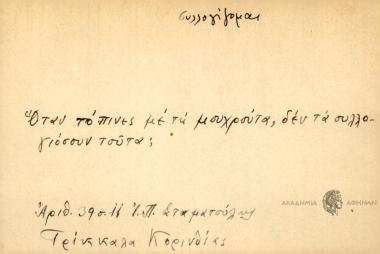 συλλογίζομαι
Ὅταν τὄπινες μέ τά μουχρούτα, δέν τά συλλο-
γιόσουν τοῦτα;
Ἀριθ. 39 σ. 11 Ἰ. Π. Σταματούλη
Τρίκκαλα Κορινθίας
ΑΚΑΔΗΜΙΑ ΑΘΗΝΩΝ